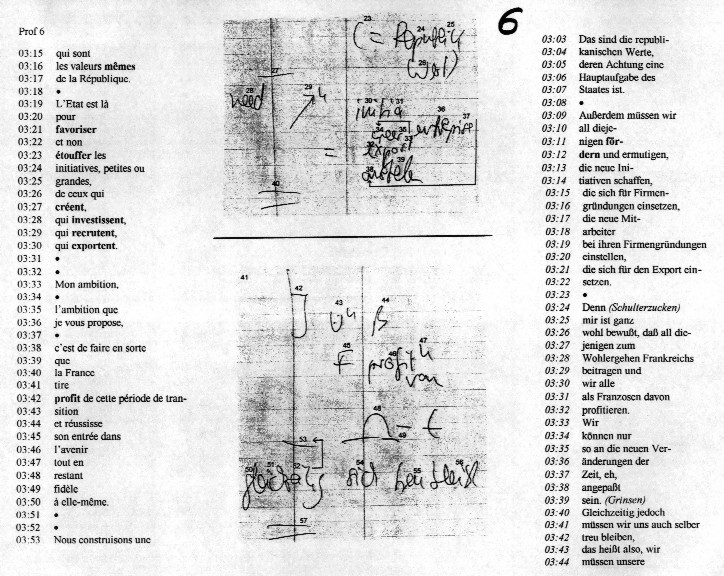 6
Prof 6
03:15 qui sont
03:16 les valeurs mêmes
03:17 de la République.
03:18 •
03:19 L'Etat est là
03:20 pour
03:21 favoriser
03:22 et non
03:23 étouffer les
03:24 initiatives, petites ou
03:25 grandes,
03:26 de ceux qui
03:27 créent,
03:28 qui investissent,
03:29 qui recrutent,
03:30 qui exportent.
03:31 •
03:32 •
03:33 Mon ambition,
03:34 •
03:35 l'ambition que
03:36 je vous propose,
03:37 •
03:38 c'est de faire en sorte
03:39 que
03:40 la France
03:41 tire
03:42 profit de cette période de tran-
03:43 sition
03:44 et réussisse
03:45 son entrée dans
03:46 l'avenir
03:47 tout en
03:48 restant
03:49 fidèle
03:50 à elle-même.
03:51 •
03:52 •
03:53 Nous construisons une
23
24 25
(= Republik
26
27
28 29
30 31
initia
36 37
34 35
33
32
export
39
38
40
41
42
43 44
ß
45
46 47
profit
von
48
49
53
50 51 52 54 55 56
sich
57
03:03 Das sind die republi-
03:04 kanischen Werte,
03:05 deren Achtung eine
03:06 Hauptaufgabe des
03:07 Staates ist.
03:08 •
03:09 Außerdem müssen wir
03:10 all dieje-
03:11 nigen för-
03:12 dern und ermutigen,
03:13 die neue Ini-
03:14 tiativen schaffen,
03:15 die sich für Firmen-
03:16 gründungen einsetzen,
03:17 die neue Mit-
03:18 arbeiter
03:19 bei ihren Firmengründungen
03:20 einstellen,
03:21 die sich für den Export ein-
03:22 setzen.
03:23 •
03:24 Denn (Schulterzucken)
03:25 mir ist ganz
03:26 wohl bewußt, daß all die-
03:27 jenigen zum
03:28 Wohlergehen Frankreichs
03:29 beitragen und
03:30 wir alle
03:31 als Franzosen davon
03:32 profitieren.
03:33 Wir
03:34 können nur
03:35 so an die neuen Ver-
03:36 änderungen der
03:37 Zeit, eh,
03:38 angepaßt
03:39 sein. (Grinsen)
03:40 Gleichzeitig jedoch
03:41 müssen wir uns auch selber
03:42 treu bleiben,
03:43 das heißt also, wir
03:44 müssen unsere